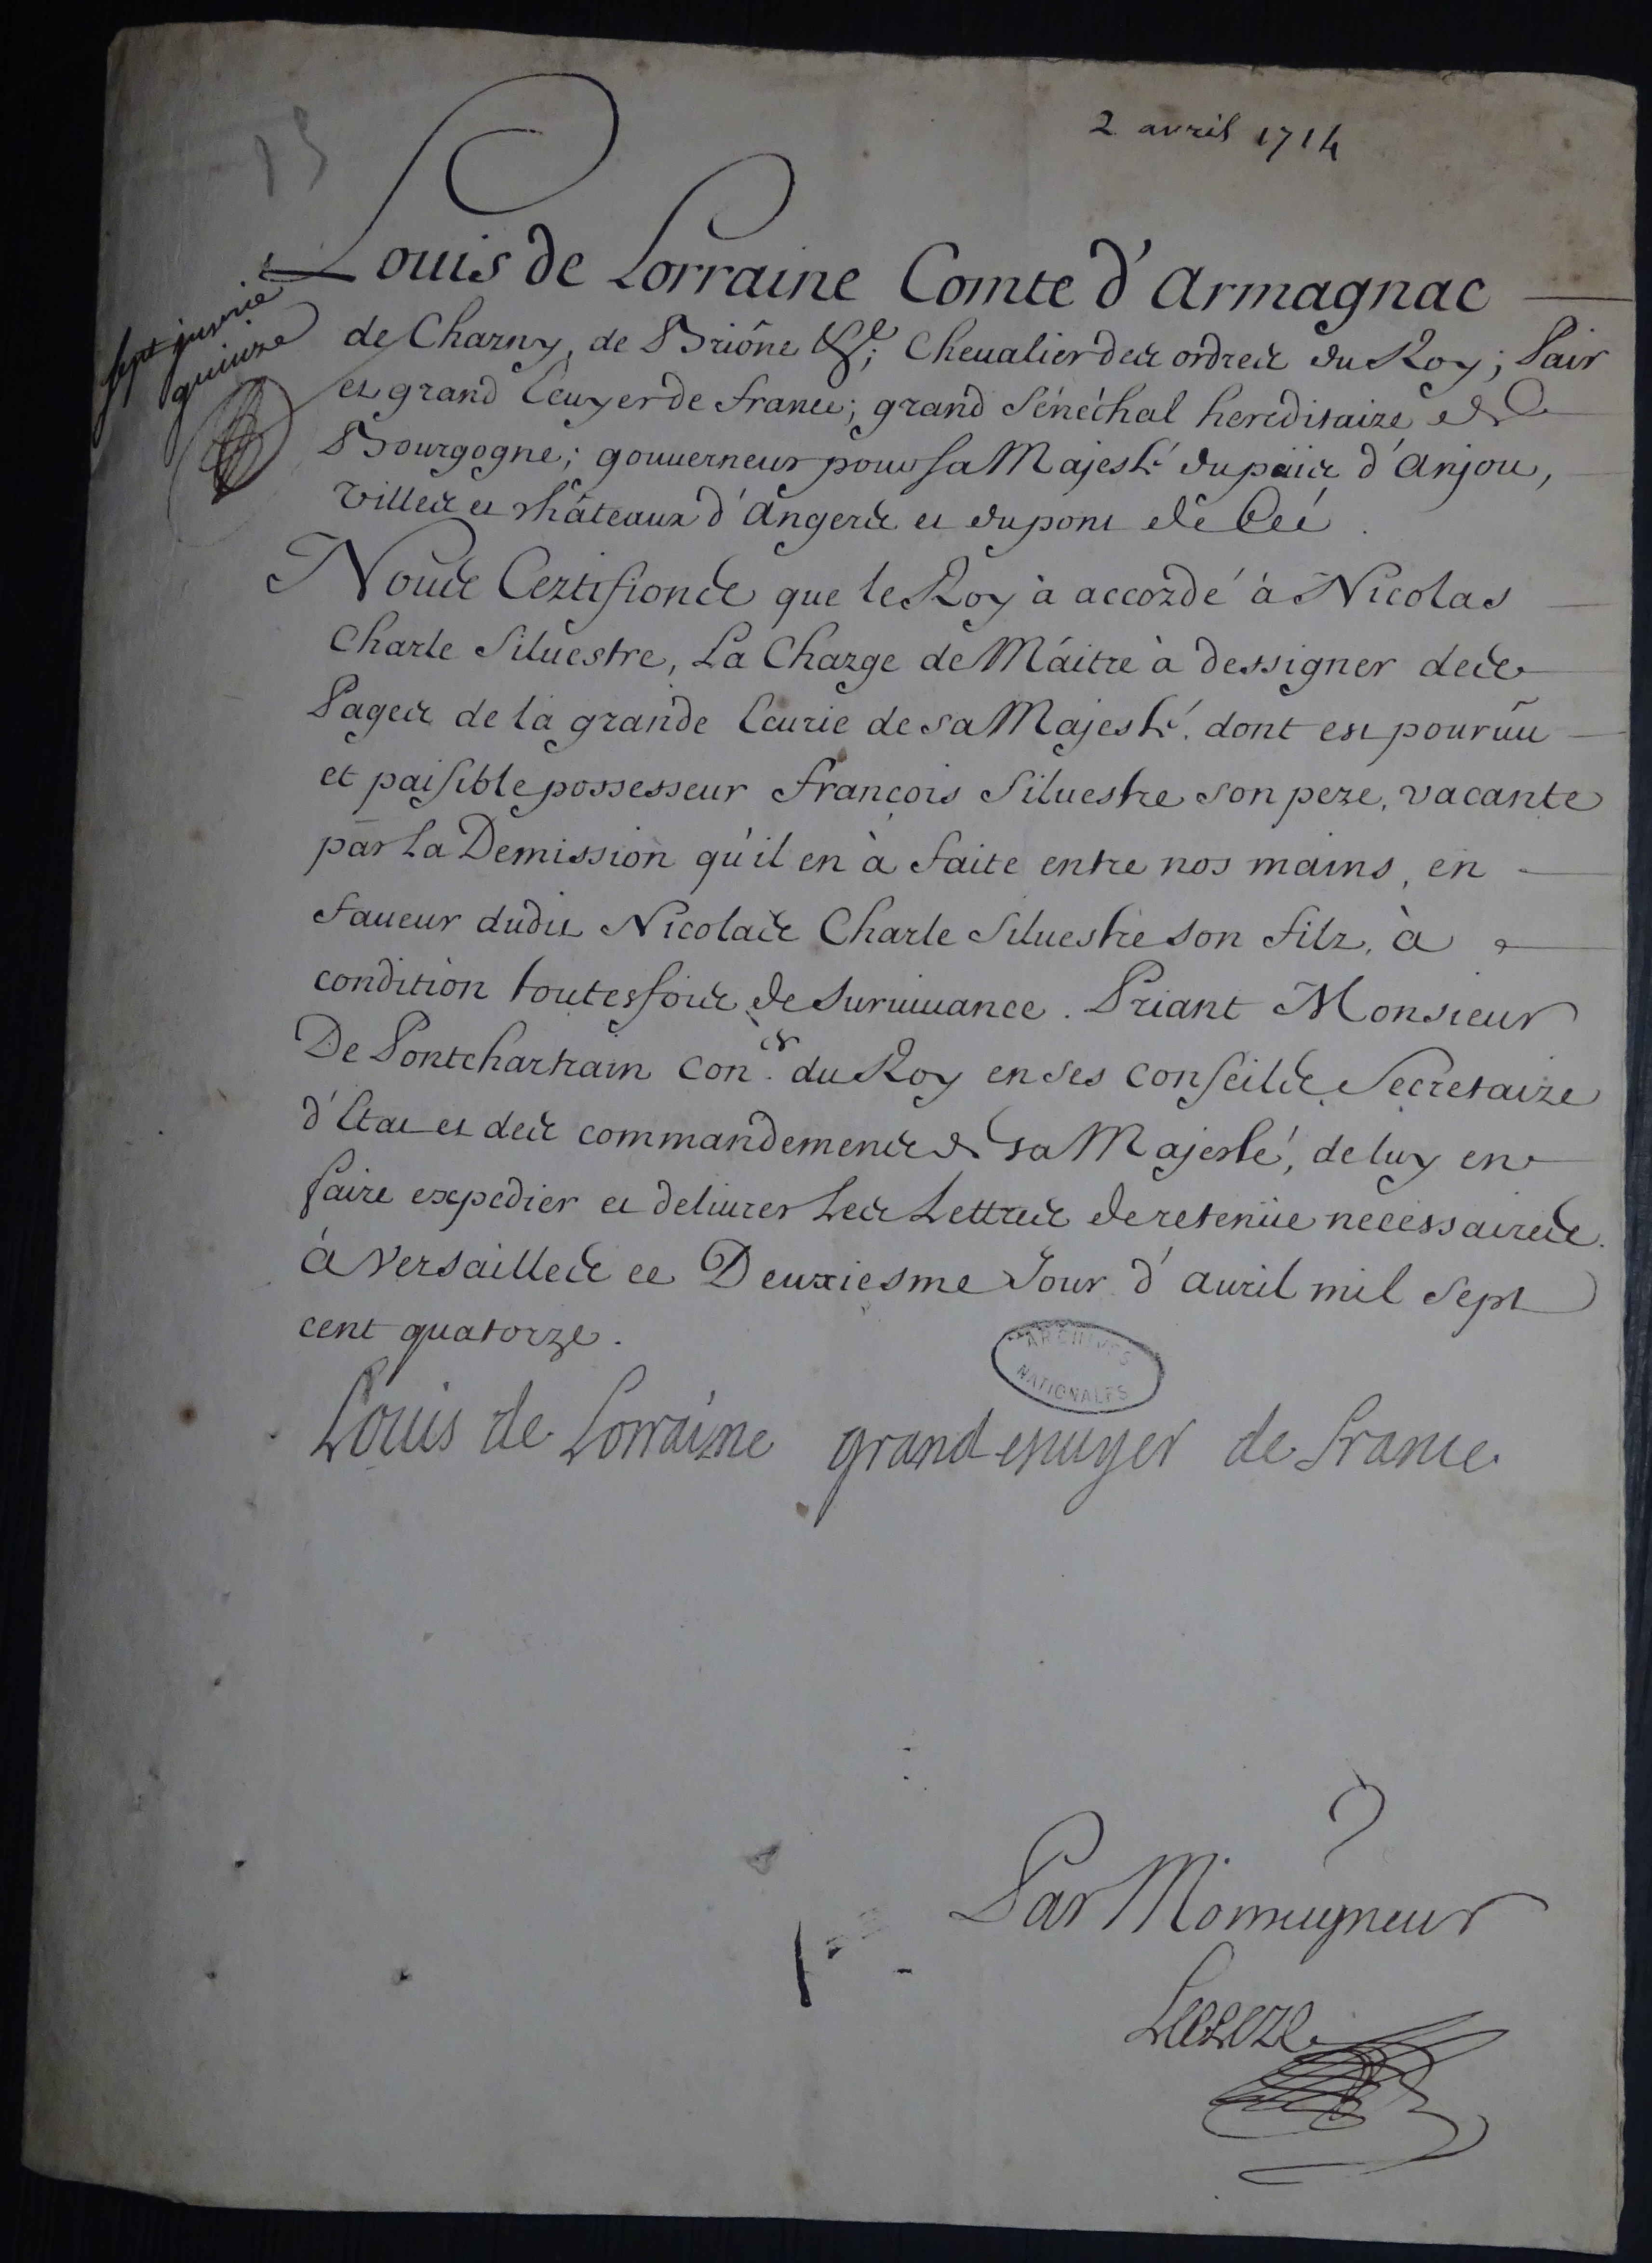 15
2 avril 1714
Louis de Lorraine Comte d'Armagnac
de Charny, de Briône &c; Cheualier des ordres du Roy; Pair
et grand Ecuyer de france; grand Sénéchal hereditaire de
Bourgogne; gouuerneur pour sa Majesté du païis d'Anjou,
villes et châteaux d'Angers et du pont de Cé.
Nous Certifions que le Roy à accordé à Nicolas
Charle Siluestre, La Charge de Máitre à dessigner des
Pages de la grande Ecurie de sa Majesté. dont est pouruû
et paisible possesseur françois Siluestre son pere, vacante
par La Demission qu'il en à faite entre nos mains, en
faueur dudit Nicolas Charle Siluestre son filz, à
condition toutesfois de Suruiuance. Priant Monsieur
De Pontchartrain con.er du Roy en ses conseils Secretaire
d'Etat et des commandements de sa Majesté, de luy en
faire expedier et deliurer Les Lettres de retenüe necessaires.
à Versailles ce Deuxiesme Jour d'auril mil Sept
cent quatorze.
ARCHIVES
NATIONALES
Louis de Lorraine grand escuyer de france
Par Monseigneur